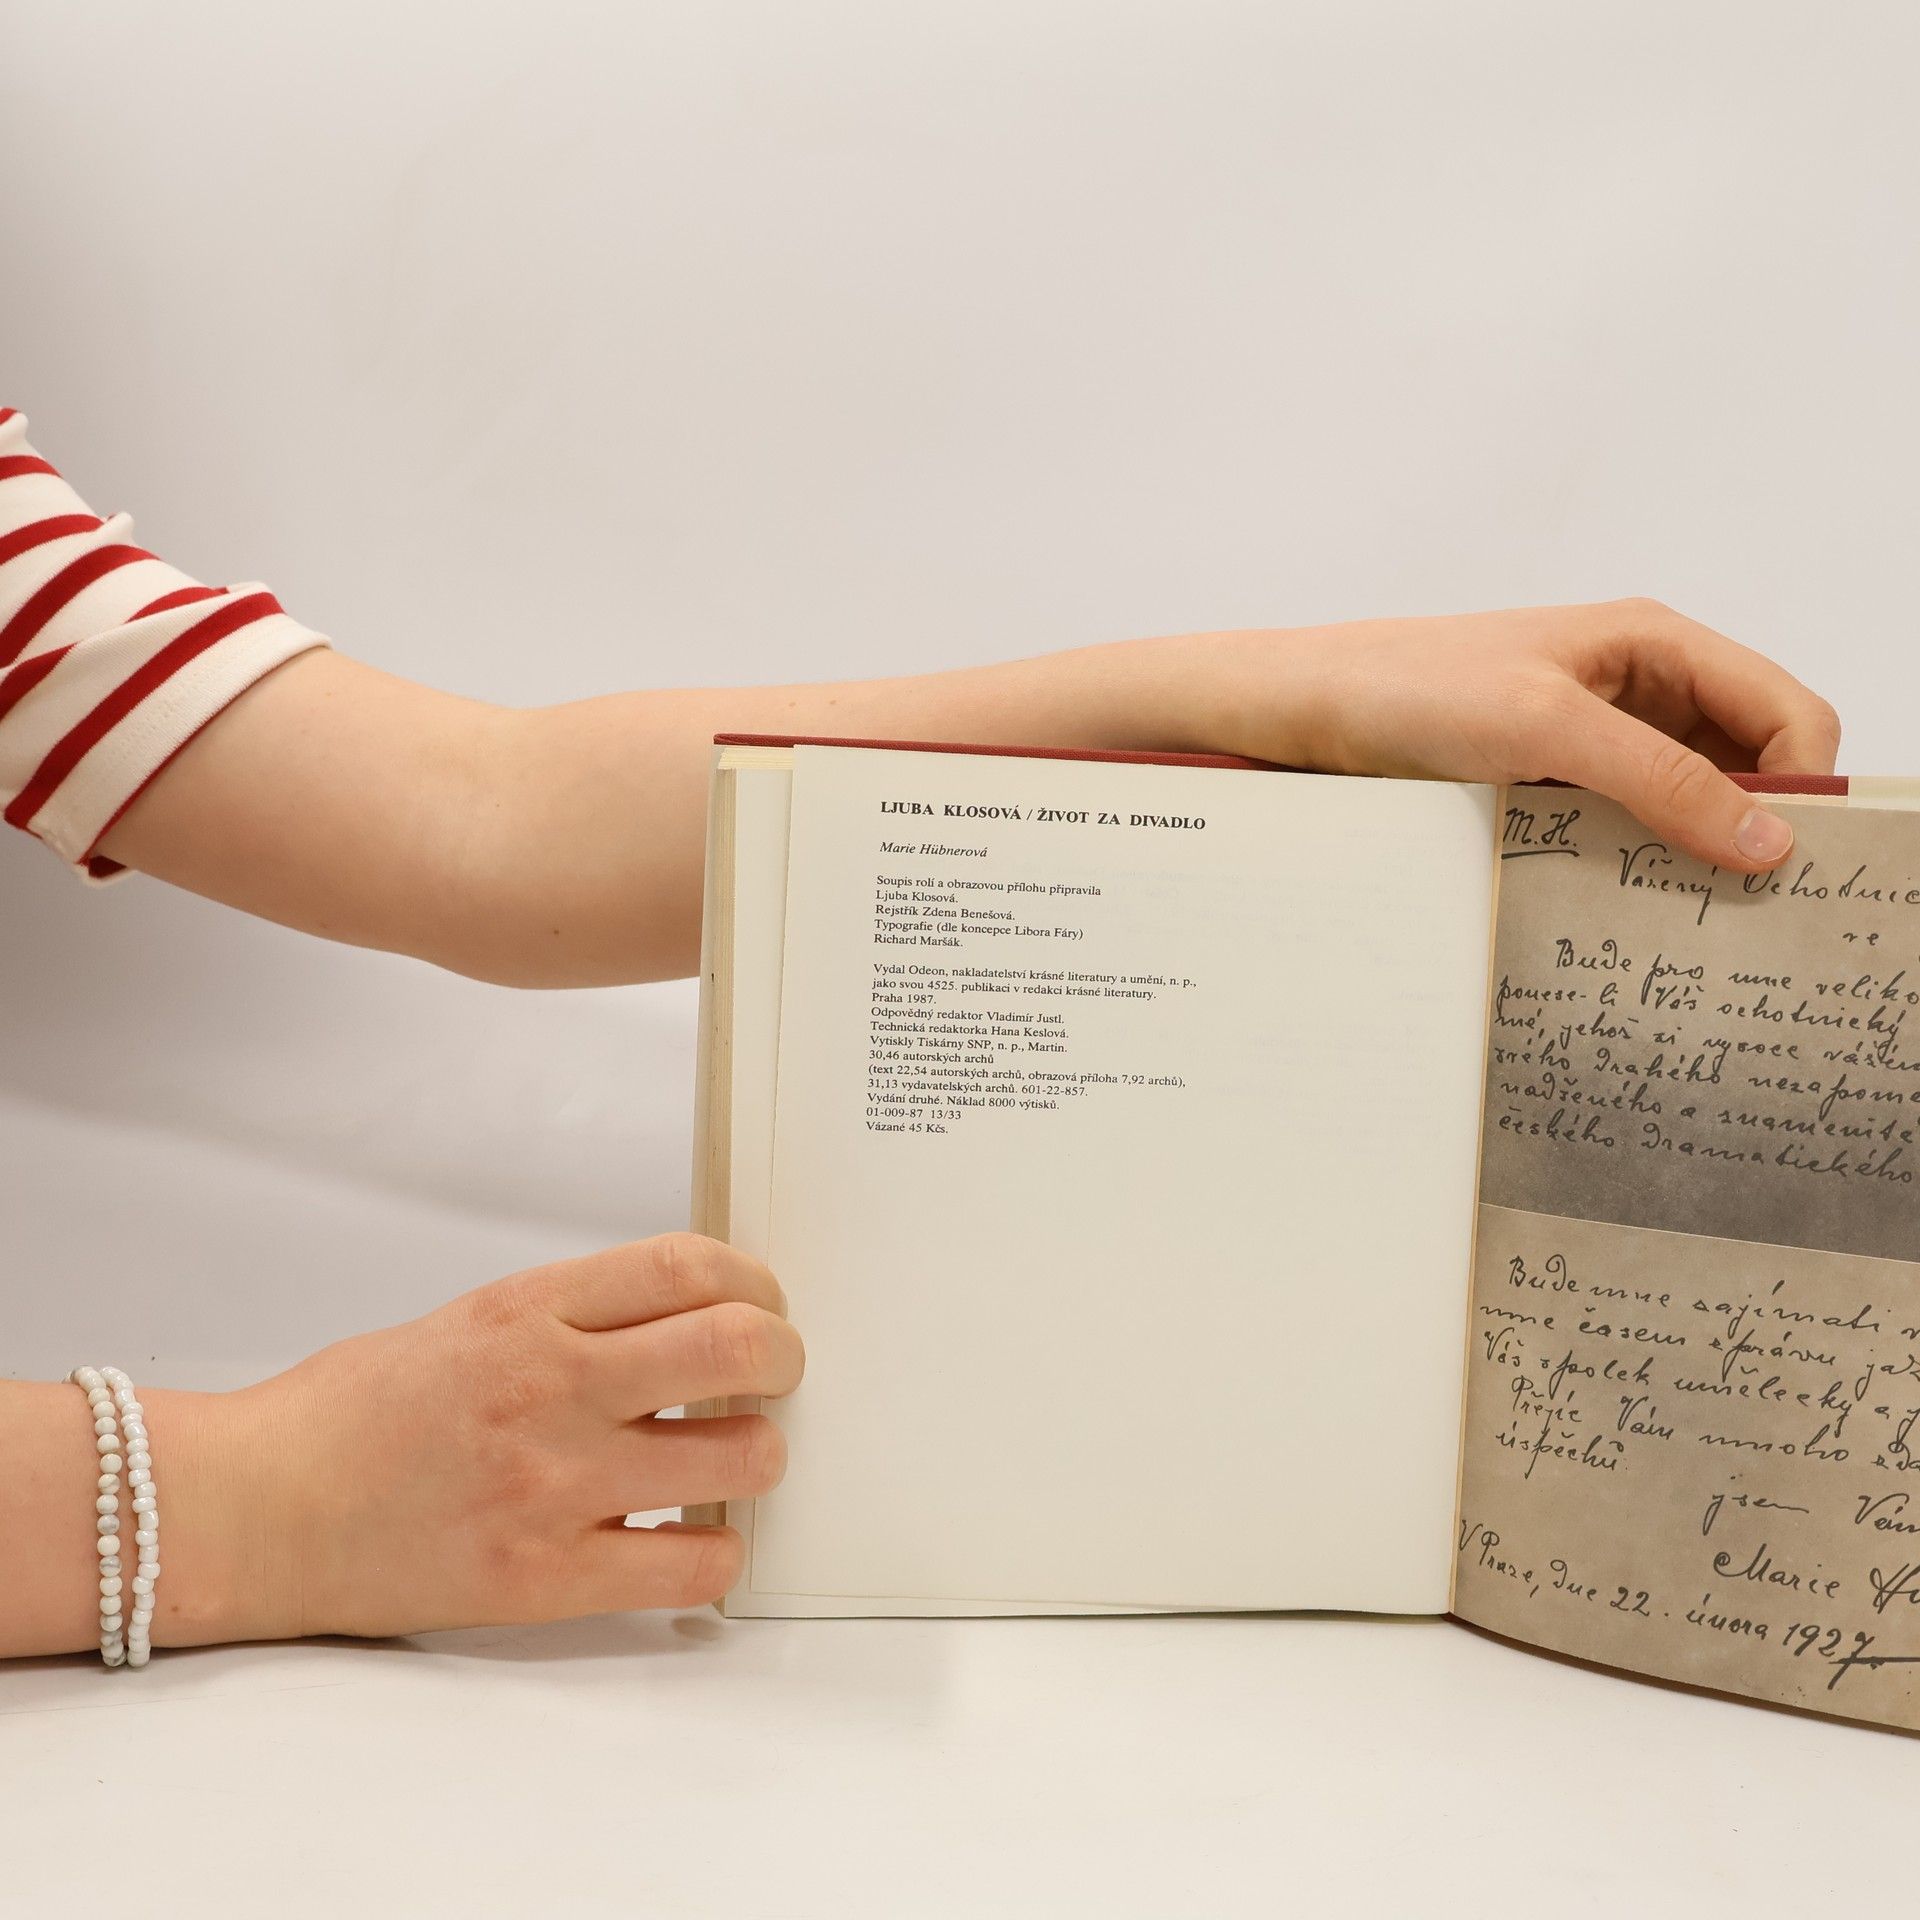 LJUBA KLOSOVÁ / ŽIVOT ZA DIVADLO
Marie Hübnerová
Soupis rolí a obrazovou přílohu připravila
Ljuba Klosová.
Rejstřík Zdena Benešová.
Typografie (dle koncepce Libora Fáry)
Richard Maršák.
Vydal Odeon, nakladatelství krásné literatury a umění, n. p.,
jako svou 4525. publikaci v redakci krásné literatury.
Praha 1987.
Odpovědný redaktor Vladimír Justl.
Technická redaktorka Hana Keslová.
Vytiskly Tiskárny SNP, n. p., Martin.
30,46 autorských archů
(text 22,54 autorských archů, obrazová příloha 7,92 archů),
31,13 vydavatelských archů. 601-22-857.
Vydání druhé. Náklad 8000 výtisků.
01-009-87 13/33
Vázané 45 Kčs.
M.H.
Vážený Ochotnic
ve
Bude pro mne veliko
ponese-li Váš ochotnický
mé, jehož si vysoce
svého drahého
nadšeného a znamenité
českého dramatického
Bude mne zajímati
mne časem zprávu
Váš spolek umělecky a
Přejíc Vám mnoho
úspěchů.
jsem Vám
Marie
V Praze, dne 22. února 1927.